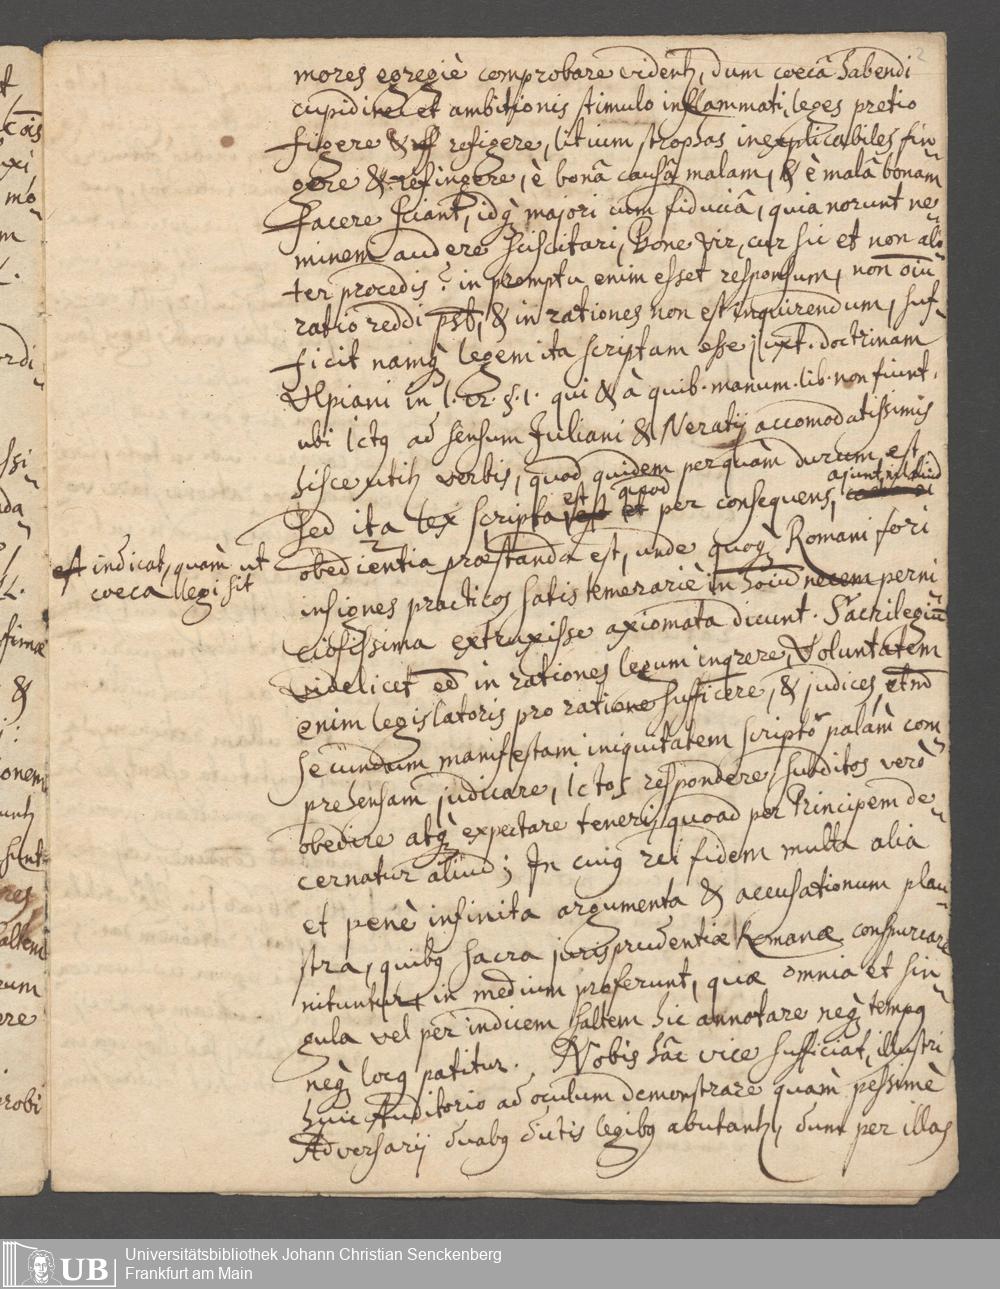 2
mores egregiè comprobare videntr, dum coecâ habendi
cupidine et ambitionis stimulo inflammati, leges pretio
figere & refigere, litium strophas inexplicabiles fin¬
gere & refingere, è bonâ causâ malam, & è malâ bonam
facere sciant, idq; majori cum fiduciâ, quia norunt ne¬
minem audere sciscitari, Bone vir, cur sic et non ali¬
ter procedis? in promptu enim esset responsum, non oīu
ratio reddi pst, & in rationes non est inquirendum, suf¬
ficit namq; legem ita scriptam esse juxt. doctrinam
Ulpiani in l. 12. §. 1. qui & à quib. manum. lib. non fiunt.
ubi Ictq ad sensum Juliani & Neratij accomodatissimis
hisce utitr verbis, quod quidem perquàm durum est
sed ita lex scripta est et quod per consequens, ajunt,
obedientia præstanda est, unde quoq; Romani fori
est indicat, quàm ut
coeca legi sit
insignes practicos satis temerariè in necem perni¬
ciosissima extruxisse axiomata dicunt. Sacrilegiū
videlicet eē in rationes legum inqrere, Voluntatem
enim legislatoris pro ratione sufficere, & judices,
secundum manifestam iniquitatem scripto palàm com¬
prehensam judicare, Ictos respondere, subditos verò
obedire atq; expectare teneri, quoad per Principem de¬
cernatur aliud; In cuiq rei fidem multa alia
et penè infinita argumenta & accusationum plau¬
stra, quibq sacra jurisprudentiæ Romanæ conspurcare
nituntur, in medium proferunt, quæ omnia et sin¬
gula vel per indicem saltem hic annotare neq; tempq
neq; locq patitur. Nobis hâc vice sufficiat, illustri
huic Auditorio ad oculum demonstrare quàm pessimè
Adversarij duabq dictis legibq abutantr, dum per illas
Universitätsbibliothek Johann Christian Senckenberg
Frankfurt am Main
UB